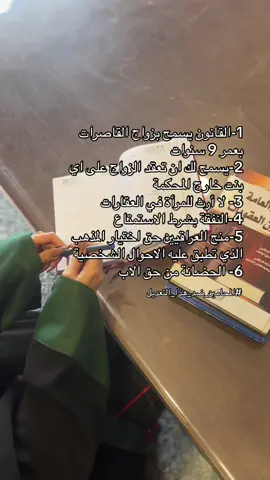 1-القانون يسمح بزواج القاصرات
بعمر 9 سنوات
2-يسمح لك ان تعقد الزواج على اي
بنت خارج المحكمة
3- لا أرث للمرأة في العقارات
4-النفقة بشرط الاستمتاع
5-منح العراقيين حق اختيار المذهب
الذي تطبق عليه الاحوال الشخصية
6- الحضانة من حق الاب
العامة